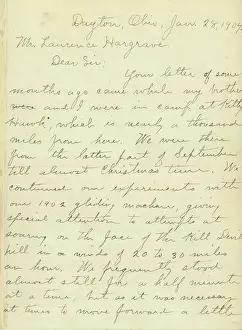 Dayton, Ohio, Jan 28, 1904
Mr. Laurence Hargrave,
Dear Sir:
Your letter of some
months ago came while my brother
and I were in camp at Kitty
Hawk, which is nearly a thousand
miles from here. We were there
from the latter part of September
till almost Christmas time. We
continued our experiments with
our 1902 gliding machine, giving
special attention to attempts at
soaring on the face of the Kill Devil
hill in winds of 20 to 30 miles
an hour. We frequently stood
almost still for a half minute
at a time, but as it was necessary
at times to move forward a little